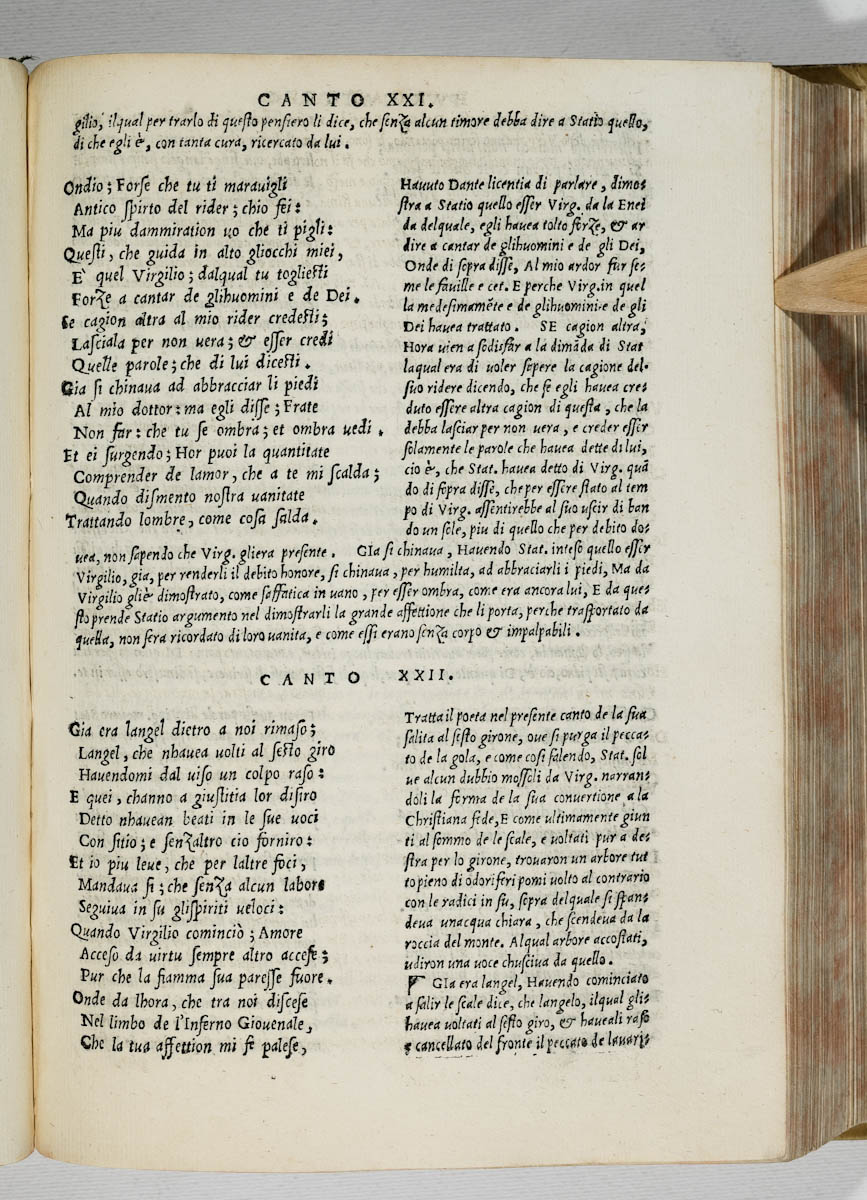 CANTO XXI.
gilio, ilqual per trarlo di questo pensiero li dice, che senza alcun timore debba dire a Statio quello,
di che egli è, con tanta cura, ricercato da lui.
Ondio; Forse che tu ti marauigli
Antico spirto del rider; chio fei:
Ma piu dammiration uo che ti pigli:
Questi, che guida in alto gliocchi miei,
E` quel Virgilio; dalqual tu togliesti
Forze a cantar de glihuomini e de Dei.
Se cagion altra al mio rider credesti;
Lasciala per non uera; & esser credi
Quelle parole; che di lui dicesti.
Gia si chinaua ad abbracciar li piedi
Al mio dottor: ma egli disse; Frate
Non far: che tu se ombra; et ombra uedi.
Et ei surgendo; Hor puoi la quantitate
Comprender de lamor, che a te mi scalda;
Quando dismento nostra uanitate
Trattando lombre, come cosa salda.
Hauuto Dante licentia di parlare, dimo-
stra a Statio quello esser Virg. da la Enei
da delquale, egli hauea tolto forze, & ar
dire a cantar de glihuomini e de gli Dei,
Onde di sopra disse, Al mio ardor fur se-
me le fauille e cet. E perche Virg. in quel
la medesimamēte e de glihuomini e de gli
Dei hauea trattato. SE cagion altra,
Hora uien a sodisfar a la dimāda di Stat
laqual era di uoler sepere la cagione del
suo ridere dicendo, che se egli hauea cre-
duto essere altra cagion di questa, che la
debba lasciar per non uera, e creder esser
solamente le parole che hauea dette di lui,
cio è, che Stat. hauea detto di Virg. quā
do di sopra disse, che per essere stato al tem
po di Virg. assentirebbe al suo uscir di ban
do un sole, piu di quello che per debito do-
uea, non sapendo che Virg. gliera presente. GIa si chinaua, Hauendo Stat. inteso quello esser
Virgilio, gia, per renderli il debito honore, si chinaua, per humilta, ad abbraciarli i piedi, Ma da
Virgilio gliè dimostrato, come saffatica in uano, per esser ombra, come era ancora lui, E da que-
sto prende Statio argumento nel dimostrarli la grande affettione che li porta, perche trasportato da
quella, non sera ricordato di loro uanita, e come essi erano senza corpo & impalpabili.
CANTO XXII.
Gia era langel dietro a noi rimaso;
Langel, che nhauea uolti al sesto giro
Hauendomi dal uiso un colpo raso:
E quei, channo a giustitia lor disiro
Detto nhauean beati in le sue uoci
Con sitio; e senzaltro cio forniro:
Et io piu leue, che per laltre foci,
Mandaua si; che senza alcun labore
Seguiua in su glispiriti ueloci:
Quando Virgilio cominciò; Amore
Acceso da uirtu sempre altro accese;
Pur che la fiamma sua paresse fuore.
Onde da lhora, che tra noi discese
Nel limbo de l'Inferno Giouenale,
Che la tua affettion mi fe palese,
Tratta il poeta nel presente canto de la sua
salita al sesto girone, oue si purga il pecca-
to de la gola, e come cosi salendo, Stat. sol
ue alcun dubbio mossoli da Virg. narran-
doli la forma de la sua conuertione a la
Christiana fede, E come ultimamente giun
ti al sommo de le scale, e uoltati pur a de-
stra per lo girone, trouaron un arbore tut
to pieno di odoriferi pomi uolto al contrario
con le radici in su, sopra delquale si span-
deua unacqua chiara, che scendeua da la
roccia del monte. Alqual arbore accostati,
udiron una uoce chusciua da quello.
GIa era langel, Hauendo cominciato
a salir le scale dice, che langelo, ilqual gli-
hauea uoltati al sesto giro, & haueali raso
e cancellato del fronte il peccato de lauari-